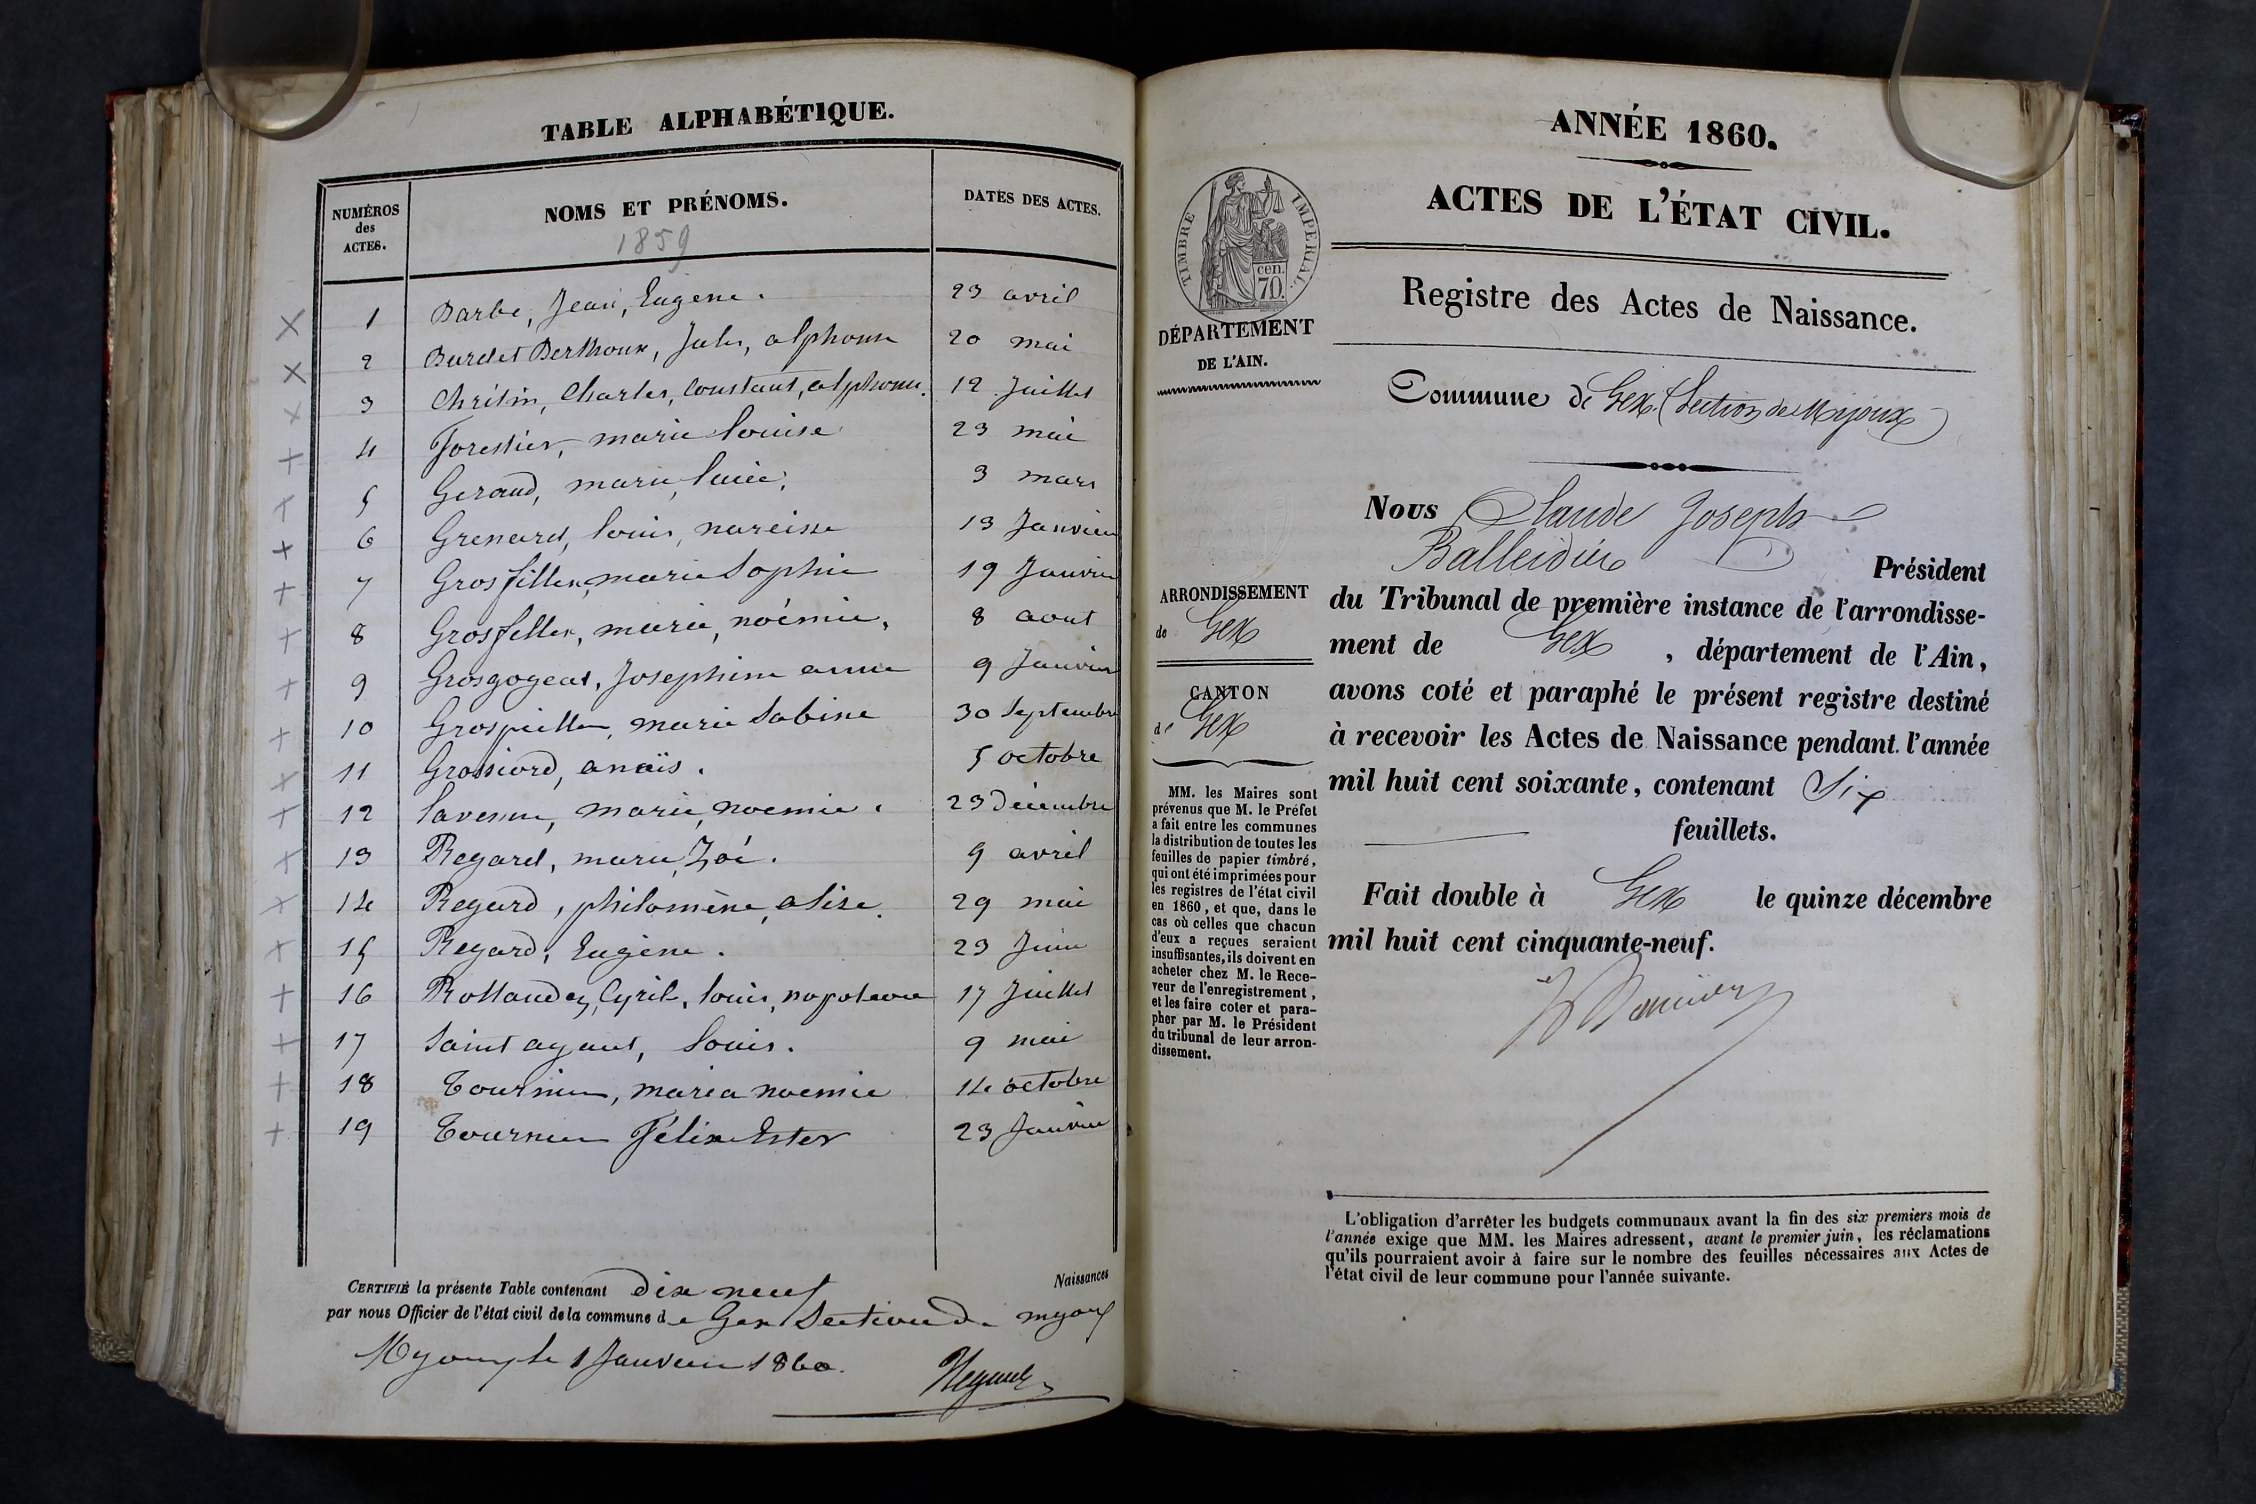 TABLE ALPHABÉTIQUE.
NUMÉROS des ACTES.
NOMS ET PRÉNOMS.
DATES DES ACTES.
1859
1 Barbe, Jean, Eugène. 23 avril
2 Burdet Berthoux, Jules, alphonse 20 mai
3 Chrétin, Charles, Constant, alphonse. 12 Juillet
4 Forestier, marie louise 23 mai
5 Geraud, marie, lucie, 3 mars
6 Grenard, louis, narcisse 13 Janvier
7 Grosfiller, marie Sophie 19 Janvier
8 Grosfiller, marie, noémie, 8 aout
9 Grosgogeat, Josephine anna 9 Janvier
10 Grospiller, marie Sabine 30 Septembre
11 Grossiord, anaïs. 5 octobre
12 Lavenne, marie, noemie. 23 Décembre
13 Regard, marie, Zoé. 9 avril
14 Regard, philomène, alise. 29 mai
15 Regard, Eugène. 23 Juin
16 Rollandez, Cyril, louis, napoleon 17 Juillet
17 Saint ayant, Louis. 9 mai
18 Tournier, maria noemie 14 octobre
19 Tournier Félix Ester 23 Janvier
CERTIFIÉ la présente Table contenant dix neuf Naissances
par nous Officier de l'état civil de la commune de Gex Section de myoux
Myoux le 1 Janvier 1860.
Regard
ANNÉE 1860.
ACTES DE L'ÉTAT CIVIL.
TIMBRE IMPÉRIAL.
cen.
70.
DÉPARTEMENT
DE L'AIN.
Registre des Actes de Naissance.
Commune de Gex (Section de Mijoux)
Nous Claude Joseph
Balleidier Président
ARRONDISSEMENT
de Gex
CANTON
de Gex
du Tribunal de première instance de l'arrondisse-
ment de Gex, département de l'Ain,
avons coté et paraphé le présent registre destiné
à recevoir les Actes de Naissance pendant l'année
mil huit cent soixante, contenant Six
feuillets.
Fait double à Gex le quinze décembre
mil huit cent cinquante-neuf.
MM. les Maires sont
prévenus que M. le Préfet
a fait entre les communes
la distribution de toutes les
feuilles de papier timbré,
qui ont été imprimées pour
les registres de l'état civil
en 1860, et que, dans le
cas où celles que chacun
d'eux a reçues seraient
insuffisantes, ils doivent en
acheter chez M. le Rece-
veur de l'enregistrement,
et les faire coter et para-
pher par M. le Président
du tribunal de leur arron-
dissement.
L'obligation d'arrêter les budgets communaux avant la fin des six premiers mois de
l'année exige que MM. les Maires adressent, avant le premier juin, les réclamations
qu'ils pourraient avoir à faire sur le nombre des feuilles nécessaires aux Actes de
l'état civil de leur commune pour l'année suivante.